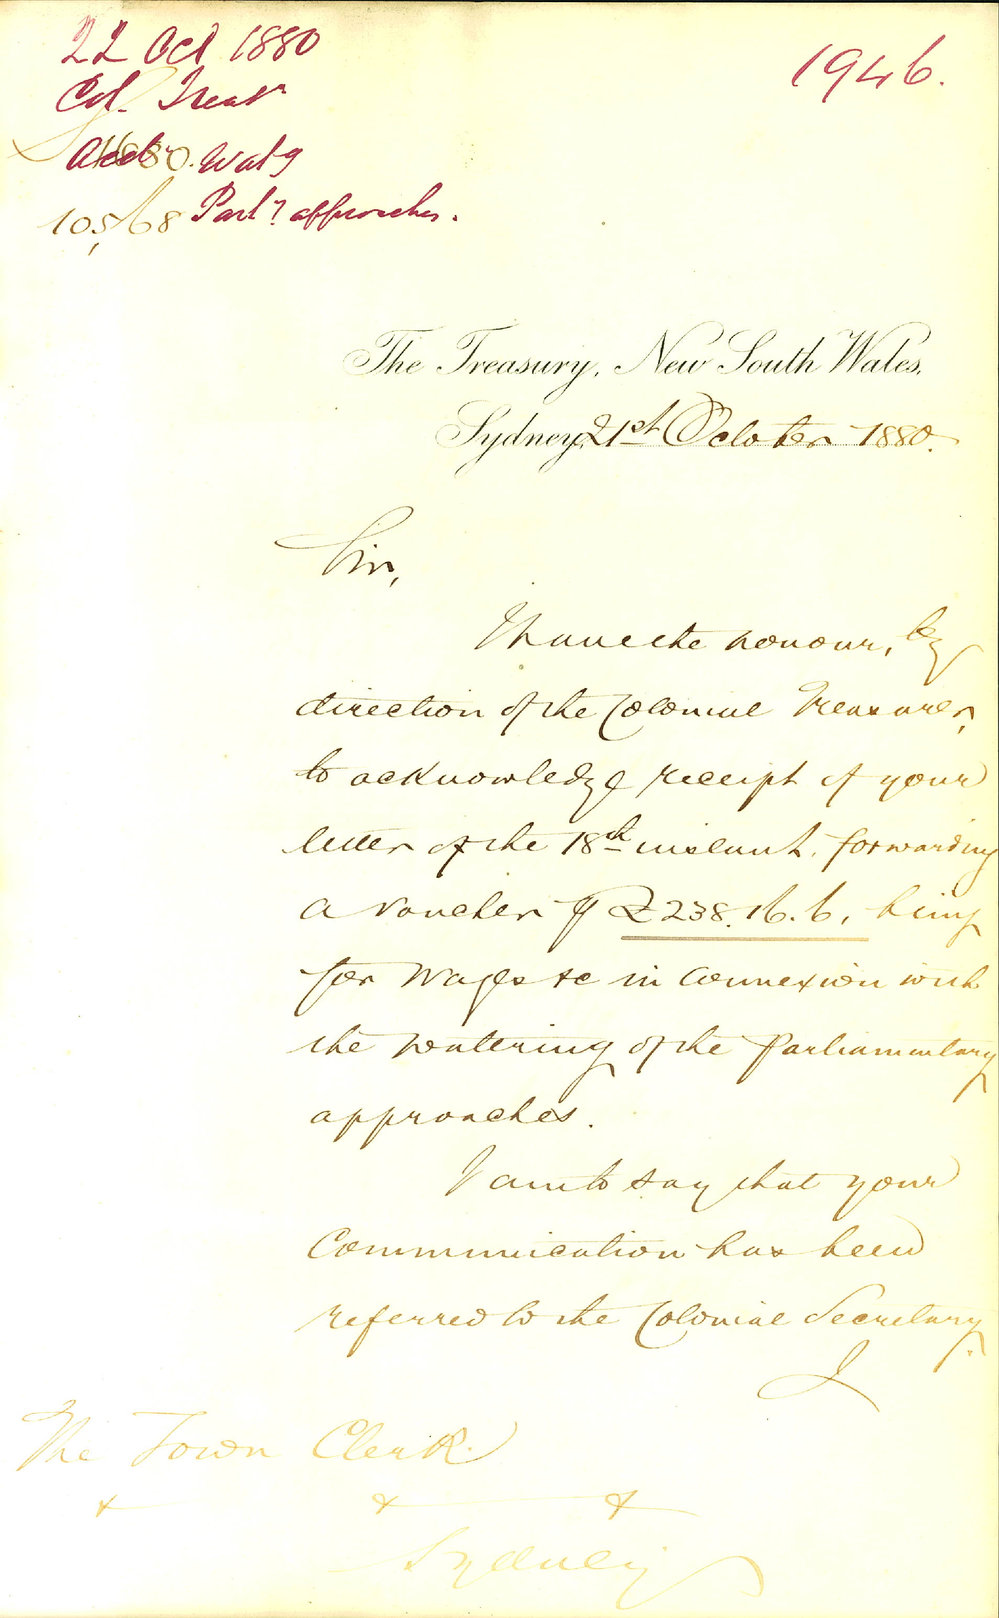 22 Oct 1880
Col. Treasr
1946.
Acct Watg
Parlt approaches.
105/68
The Treasury, New South Wales,
Sydney, 21st October 1880.
Sir,
I have the honour, by
direction of the Colonial Treasurer,
to acknowledge receipt of your
letter of the 18th instant, forwarding
a voucher for £238.16.6, being
for Wages &c in Connexion with
the watering of the Parliamentary
approaches.
I am to say that your
Communication has been
referred to the Colonial Secretary.
I
The Town Clerk
Sydney